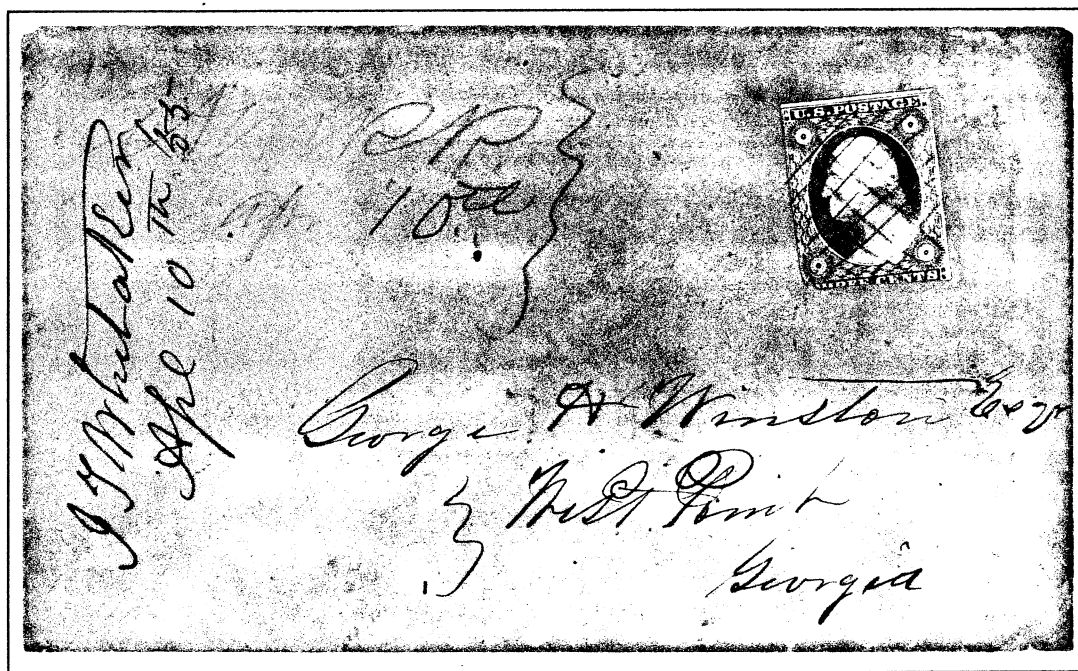 J T Whitaker
Apl 10 Th /55
U.S. POSTAGE.
THREE CENTS
George W Winston Esqr
West Point
Georgia